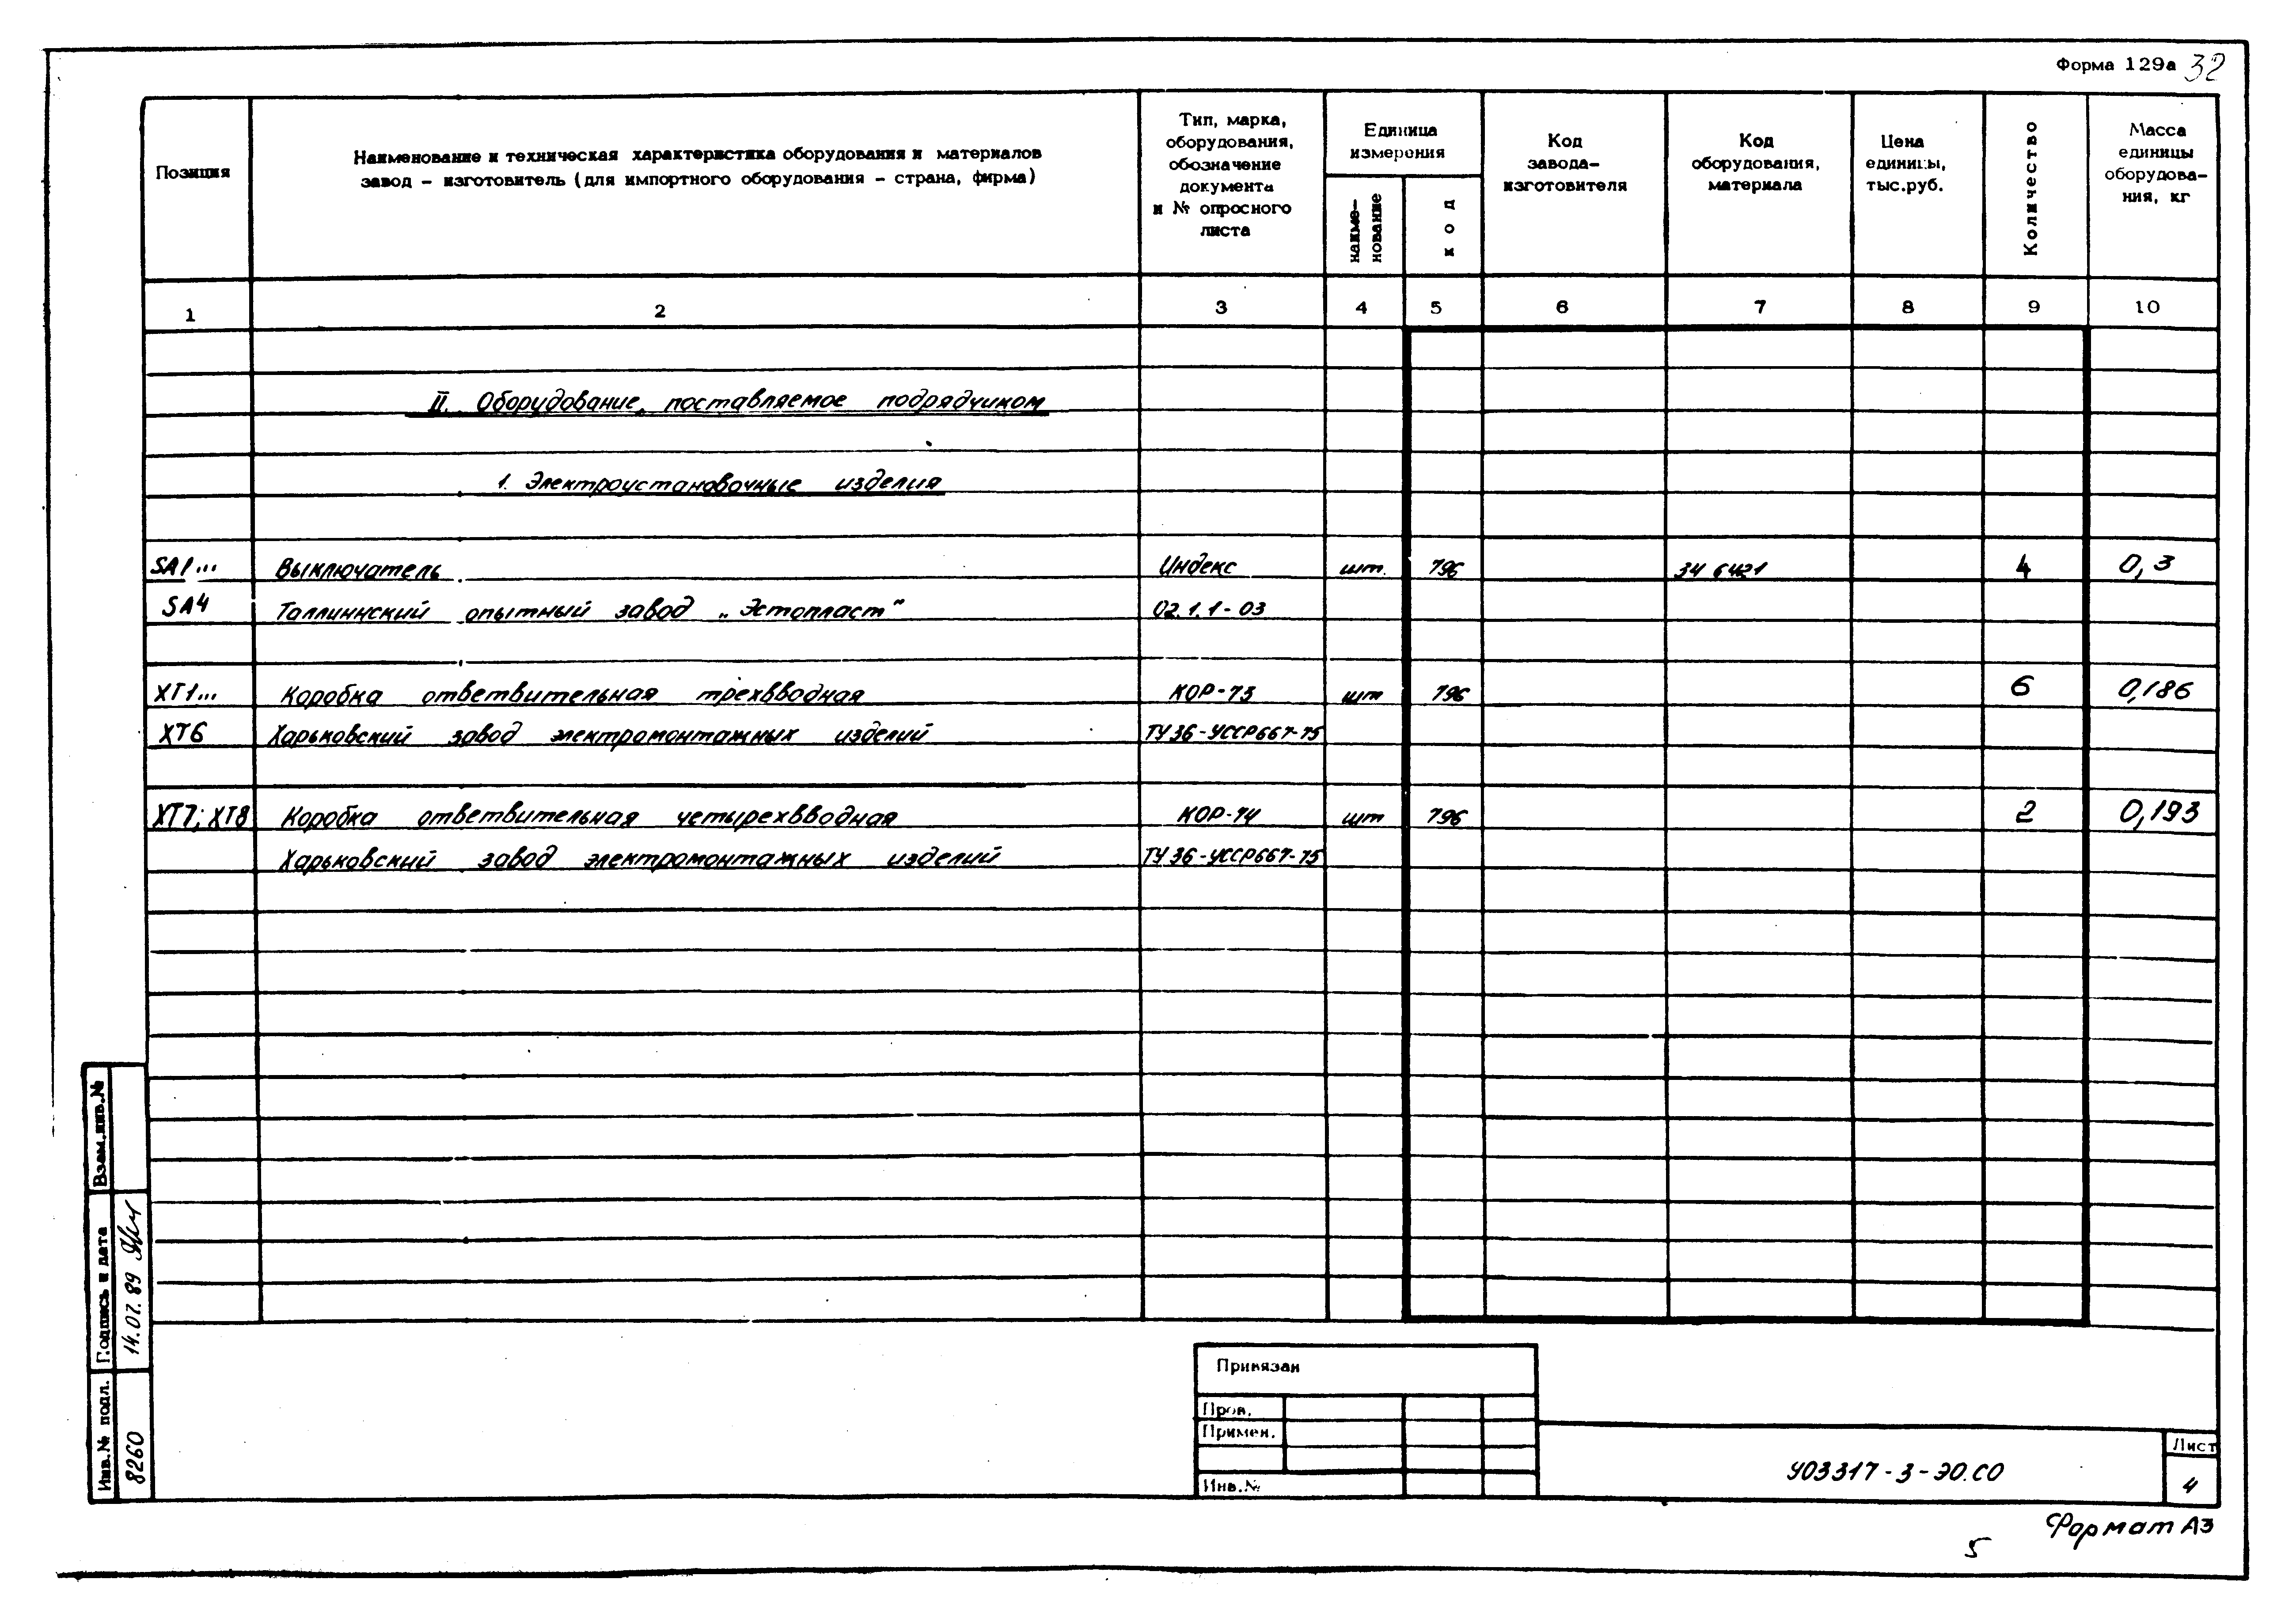 Форма 129а 32
Позиция
Наименование и техническая характеристика оборудования и материалов
завод – изготовитель (для импортного оборудования – страна, фирма)
Тип, марка,
оборудования,
обозначение
документа
и № опросного
листа
Единица
измерения
наиме-
нование
код
Код
завода-
изготовителя
Код
оборудования,
материала
Цена
единицы,
тыс.руб.
Количество
Масса
единицы
оборудова-
ния, кг
1 2 3 4 5 6 7 8 9 10
II. Оборудование, поставляемое подрядчиком
1. Электроустановочные изделия
SA1... Выключатель Индекс шт. 796 34 6421 4 0,3
SA4 Таллиннский опытный завод „Эстопласт" 02.1.1-03
XT1... Коробка ответвительная трехвводная КОР-73 шт 796 6 0,186
XT6 Харьковский завод электромонтажных изделий ТУ36-УССР667-75
XT7; XT8 Коробка ответвительная четырехвводная КОР-74 шт 796 2 0,193
Харьковский завод электромонтажных изделий ТУ36-УССР667-75
Взам.инв.№
Подпись и дата
14.07.89
Инв.№ подл.
8260
Привязан
Пров.
Примен.
Инв.№
У03317-3-ЭО.СО
Лист
4
Формат А3
5